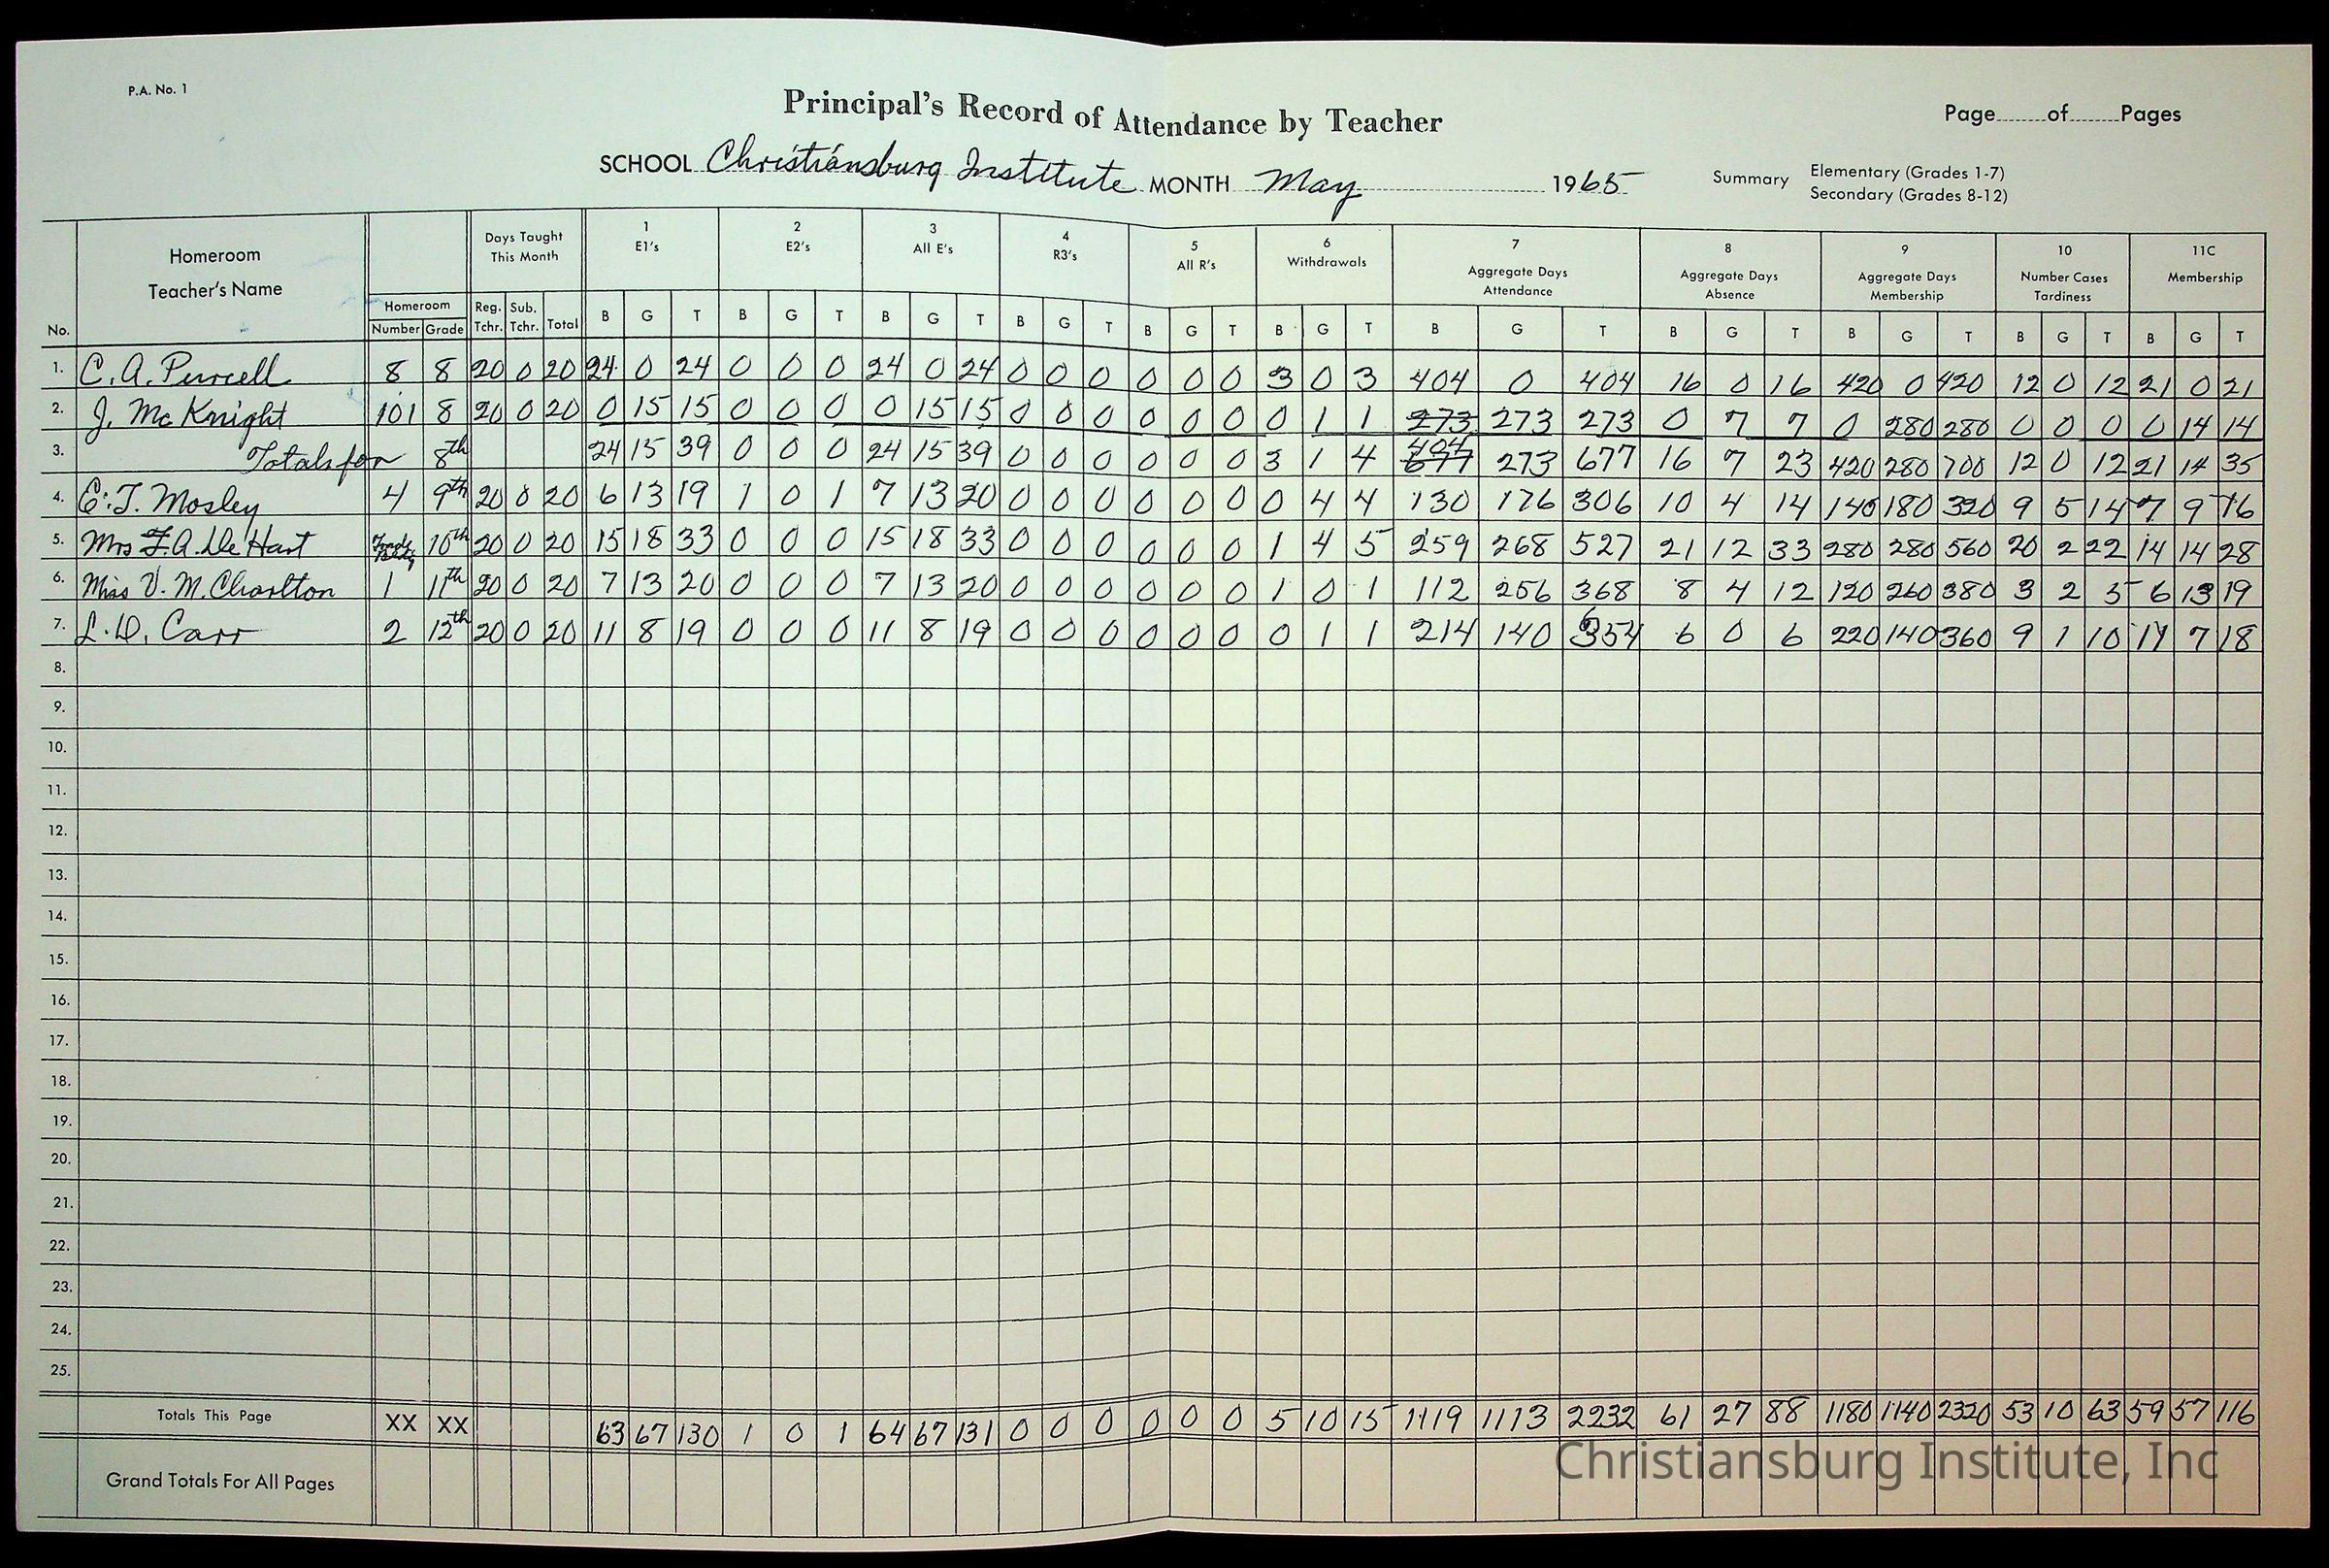 P.A. No. 1
Principal's Record of Attendance by Teacher
Page of Pages
SCHOOL Christiansburg Institute MONTH May 1965
Summary Elementary (Grades 1-7)
Secondary (Grades 8-12)
No. Homeroom Teacher's Name Homeroom Number Grade Days Taught This Month Reg. Tchr. Sub. Tchr. Total 1 E1's 2 E2's 3 All E's 4 R3's 5 All R's 6 Withdrawals 7 Aggregate Days Attendance 8 Aggregate Days Absence 9 Aggregate Days Membership 10 Number Cases Tardiness 11C Membership
B G T B G T B G T B G T B G T B G T B G T B G T B G T B G T B G T
1. C. A. Purcell 8 8 20 0 20 24 0 24 0 0 0 24 0 24 0 0 0 0 0 0 3 0 3 404 0 404 16 0 16 420 0 420 12 0 12 21 0 21
2. J. McKnight 101 8 20 0 20 0 15 15 0 0 0 0 15 15 0 0 0 0 0 0 0 1 1 273 273 273 0 7 7 0 280 280 0 0 0 0 14 14
3. Totals for 8th 24 15 39 0 0 0 24 15 39 0 0 0 0 0 0 3 1 4 404 677 273 677 16 7 23 420 280 700 12 0 12 21 14 35
4. E. T. Mosley 4 9th 20 0 20 6 13 19 1 0 1 7 13 20 0 0 0 0 0 0 0 4 4 130 176 306 10 4 14 140 180 320 9 5 14 7 9 16
5. Mrs F. A. De Hart 10th 20 0 20 15 18 33 0 0 0 15 18 33 0 0 0 0 0 0 1 4 5 259 268 527 21 12 33 280 280 560 20 2 22 14 14 28
6. Miss V. M. Charlton 1 11th 20 0 20 7 13 20 0 0 0 7 13 20 0 0 0 0 0 0 1 0 1 112 256 368 8 4 12 120 260 380 3 2 5 6 13 19
7. L. D. Carr 2 12th 20 0 20 11 8 19 0 0 0 11 8 19 0 0 0 0 0 0 0 1 1 214 140 354 6 0 6 220 140 360 9 1 10 11 7 18
8.
9.
10.
11.
12.
13.
14.
15.
16.
17.
18.
19.
20.
21.
22.
23.
24.
25.
Totals This Page XX XX 63 67 130 1 0 1 64 67 131 0 0 0 0 0 0 5 10 15 1119 1113 2232 61 27 88 1180 1140 2320 53 10 63 59 57 116
Grand Totals For All Pages
Christiansburg Institute, Inc